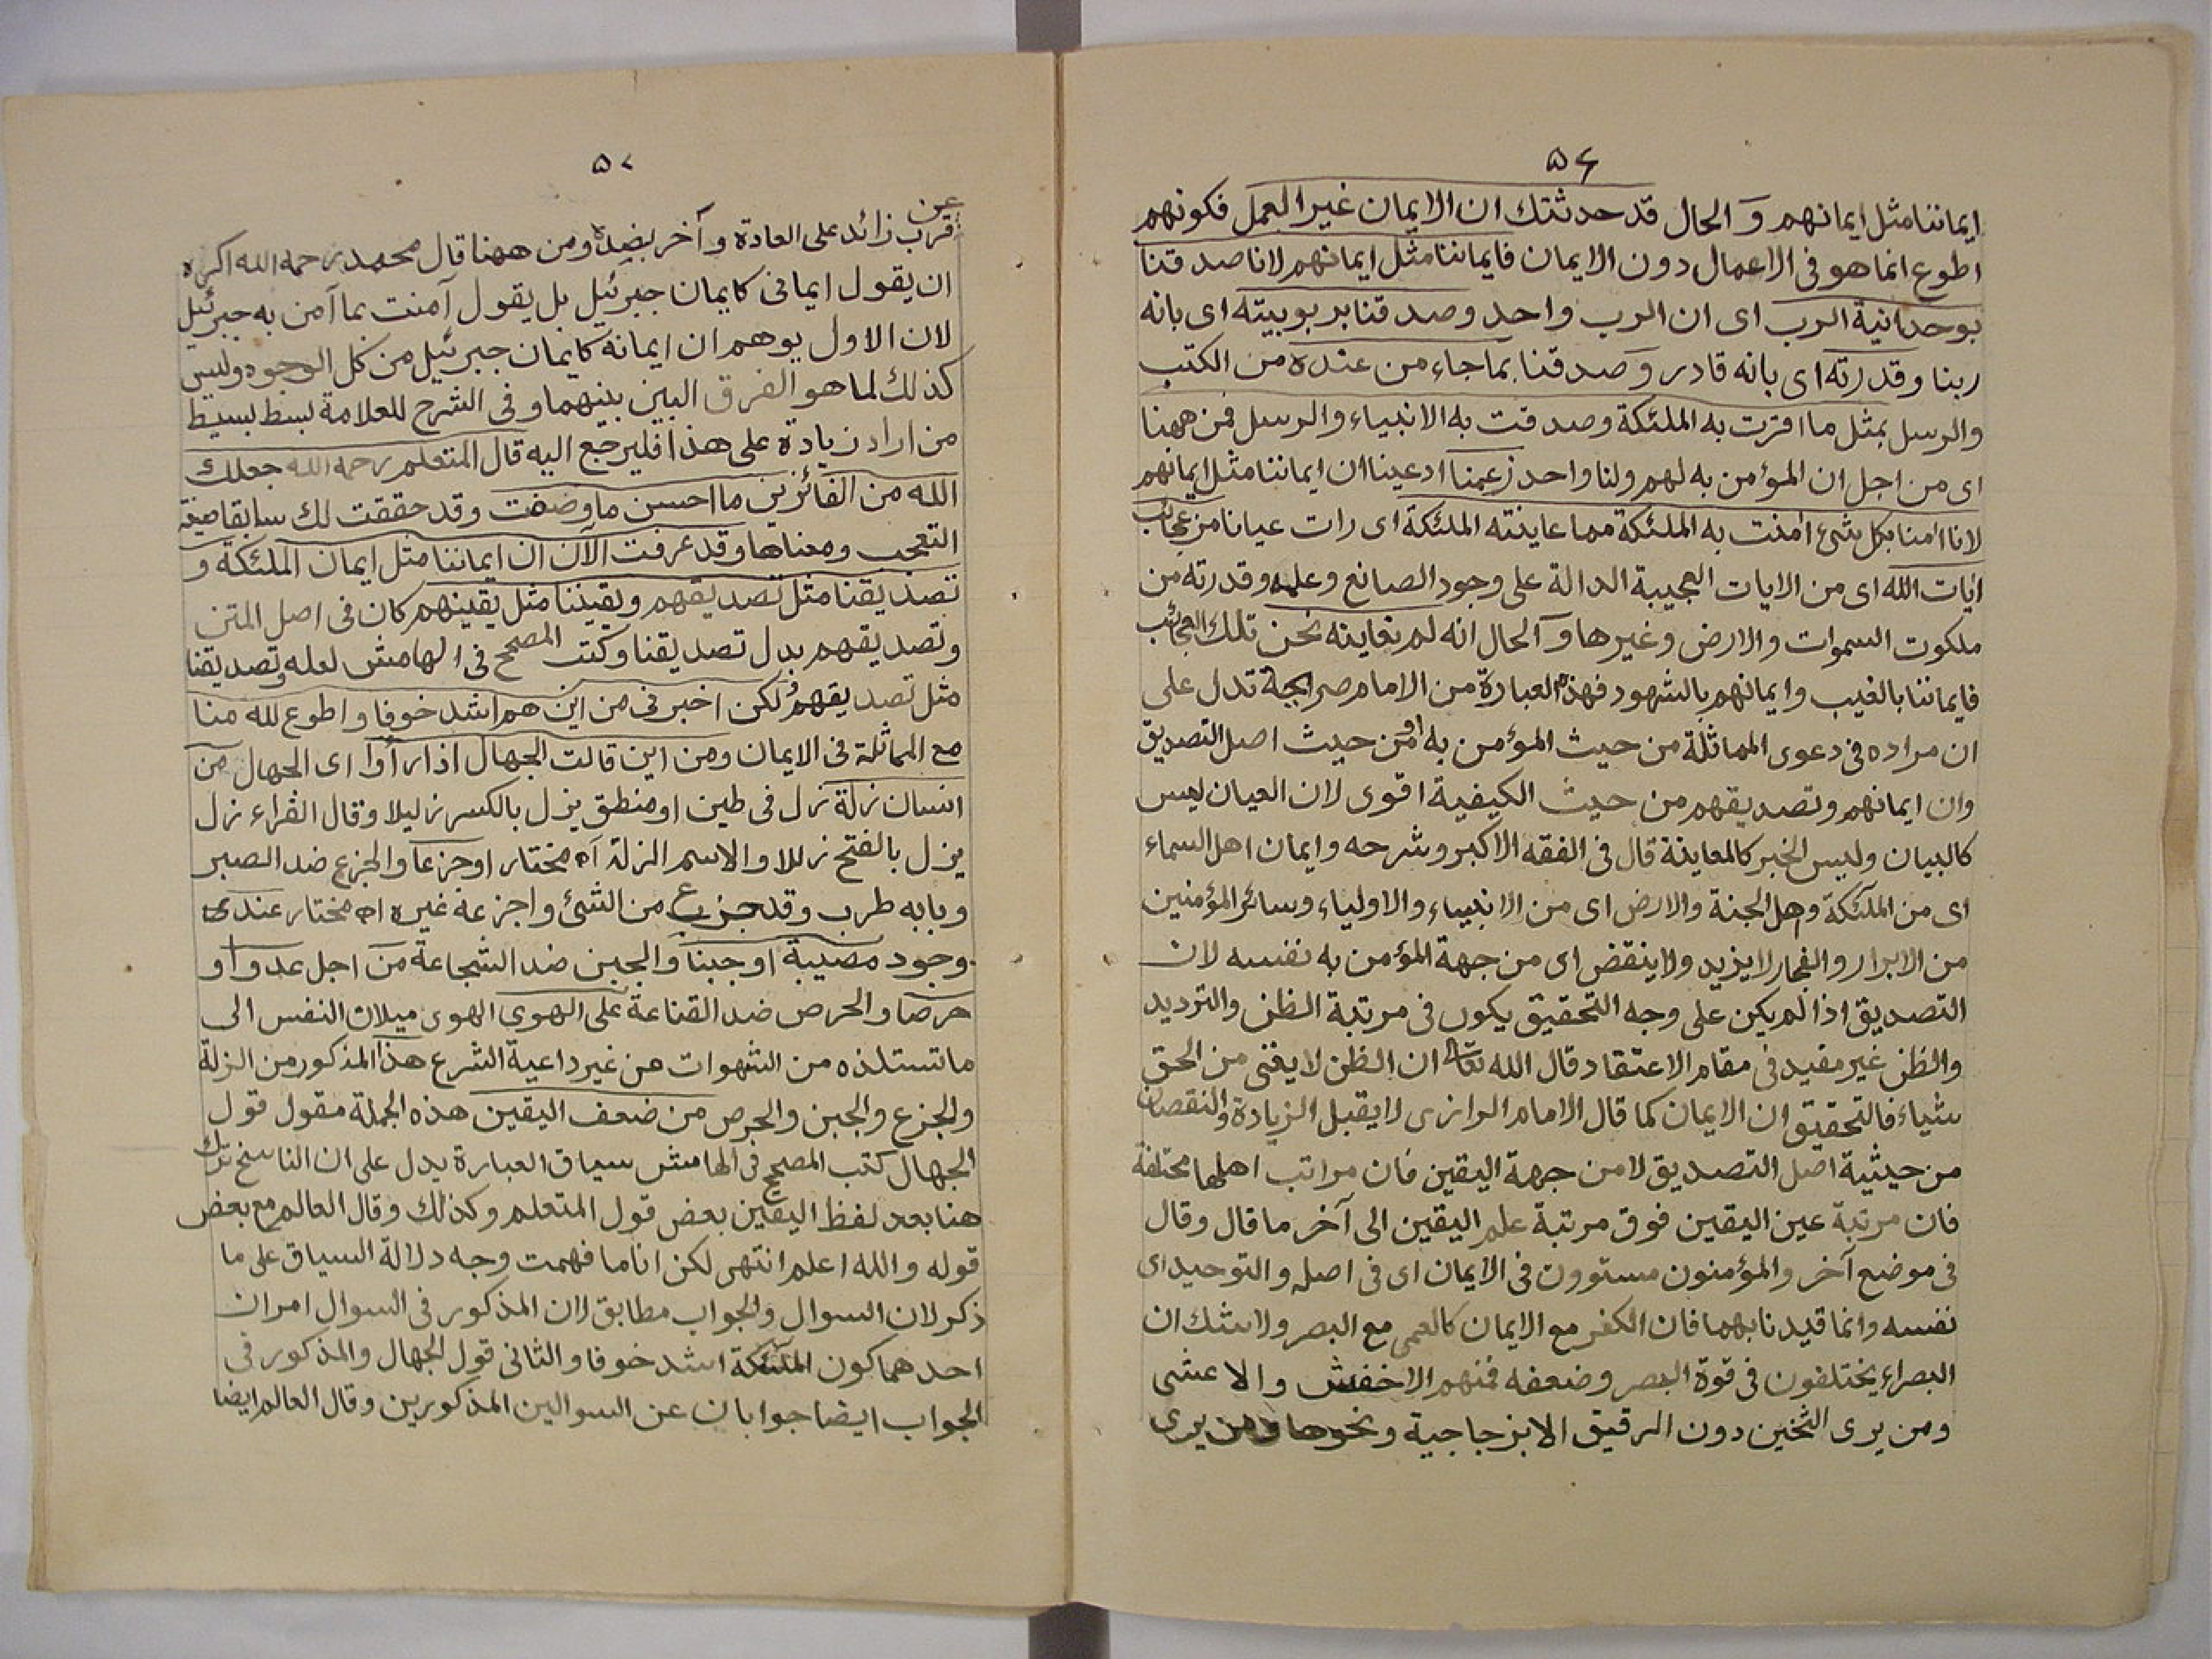 ٥٦
ايماننا مثل ايمانهم و الحال قد حدثتك ان الايمان غير العمل فكونهم
اطوع انما هو فى الاعمال دون الايمان فايماننا مثل ايمانهم لانا صدقنا
بوحدانية الرب اى ان الرب واحد وصدقنا بربوبيته اى بانه
ربنا وقدرته اى بانه قادر وصدقنا بما جاء من عنده من الكتب
والرسل بمثل ما اقرت به الملئكة وصدقت به الانبياء والرسل فمن ههنا
اى من اجل ان المؤمن به لهم ولنا واحد زعمنا ادعينا ان ايماننا مثل ايمانهم
لانا امنا بكل شئ امنت به الملئكة مما عاينته الملئكة اى رات عيانا من عجائب
ايات الله اى من الايات العجيبة الدالة على وجود الصانع وعلمه وقدرته من
ملكوت السموات والارض وغيرها و الحال انه لم نعاينه نحن تلك العجائب
فايماننا بالغيب وايمانهم بالشهود فهذه العبارة من الامام صرايحة تدل على
ان مراده فى دعوى المماثلة من حيث المؤمن به او من حيث اصل التصديق
وان ايمانهم وتصديقهم من حيث الكيفية اقوى لان العيان ليس
كالبيان وليس الخبر كالمعاينة قال فى الفقه الاكبر وشرحه وايمان اهل السماء
اى من الملئكة وهل الجنة والارض اى من الانبياء والاولياء وسائر المؤمنين
من الابرار والفجار لا يزيد ولا ينقض اى من جهة المؤمن به نفسه لان
التصديق اذا لم يكن على وجه التحقيق يكون فى مرتبة الظن والترديد
والظن غير مفيد فى مقام الاعتقاد قال الله تعالى ان الظن لا يغنى من الحق
شياء فالتحقيق ان الايمان كما قال الامام الرازى لا يقبل الزيادة والنقصان
من حيثية اصل التصديق لا من جهة اليقين فان مراتب اهلها مختلفة
فان مرتبة عين اليقين فوق مرتبة علم اليقين الى آخر ما قال وقال
فى موضع آخر والمؤمنون مستوون فى الايمان اى فى اصله والتوحيد اى
نفسه وانما قيدنا بهما فان الكفر مع الايمان كالعمى مع البصر ولا شك ان
البصراء يختلفون فى قوة البصر وضعفه فمنهم الاخفش والاعشى
ومن يرى الثخين دون الرقيق الا بزجاجية ونحوها ومن يرى
٥٧
عن
قرب زائد على العادة و آخر بضده ومن ههنا قال محمد رحمه الله اكره
ان يقول ايمانى كايمان جبرئيل بل يقول آمنت بما آمن به جبرئيل
لان الاول يوهم ان ايمانه كايمان جبرئيل من كل الوجود وليس
كذلك لما هو الفرق البين بينهما وفى الشرح للعلامة بسط بسيط
من اراد زيادة على هذا فليرجع اليه قال المتعلم رحمه الله جعلك
الله من الفائزين ما احسن ما وضفت وقد حققت لك سابقا صيغة
التعجب ومعناها وقد عرفت الآن ان ايماننا مثل ايمان الملئكة و
تصديقنا مثل تصديقهم ويقيننا مثل يقينهم كان فى اصل المتن
وتصديقهم بدل تصديقنا وكتب المصحح فى الهامش لعله وتصديقنا
مثل تصديقهم ولكن اخبرنى من اين هم اشد خوفا واطوع لله منا
مع المماثلة فى الايمان ومن اين قالت الجهال اذا رأوا اى الجهال من
انسان زلة زل فى طين او منطق يزل بالكسر زليلا وقال الفراء زل
يزل بالفتح زللا والاسم الزلة آه مختار او جزعا والجزع ضد الصبر
وبابه طرب وقد جزع من الشئ واجزعه غيره اه مختار عندى
وجود مصيبة او جبنا والجبن ضد الشجاعة من اجل عدو او
حرصا والحرص ضد القناعة على الهوى الهوى ميلان النفس الى
ما تستلذه من الشهوات من غير داعية الشرع هذا المذكور من الزلة
والجزع والجبن والحرص من ضعف اليقين هذه الجملة مقول قول
الجهال كتب المصحح فى الهامش سياق العبارة يدل على ان الناسخ ترك
هنا بعد لفظ اليقين بعض قول المتعلم وكذلك وقال العالم مع بعض
قوله والله اعلم انتهى لكن انا ما فهمت وجه دلالة السياق على ما
ذكر لان السوال والجواب مطابق لان المذكور فى السوال امران
احدهما كون الملئكة اشد خوفا والثانى قول الجهال والمذكور فى
الجواب ايضا جوابان عن السوالين المذكورين وقال العالم ايضا